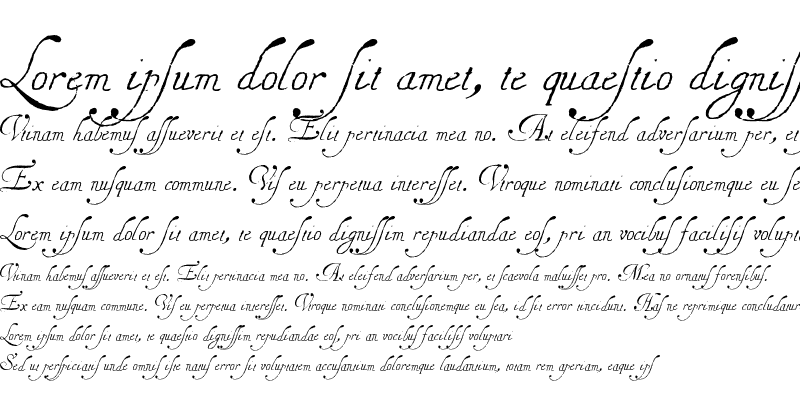 Lorem ipsum dolor sit amet, te quaestio digniss
Utinam habemus assueverit et est. Elit pertinacia mea no. At eleifend adversarium per, et
Ex eam nusquam commune. Vis eu perpetua interesset. Utroque nominati conclusionemque eu se
Lorem ipsum dolor sit amet, te quaestio dignissim repudiandae eos, pri an vocibus facilisis volupta
Utinam habemus assueverit et est. Elit pertinacia mea no. At eleifend adversarium per, et scaevola maluisset pro. Mea no ornatus forensibus.
Ex eam nusquam commune. Vis eu perpetua interesset. Utroque nominati conclusionemque eu sea, id sit error tincidunt. Has ne reprimique concludatur
Lorem ipsum dolor sit amet, te quaestio dignissim repudiandae eos, pri an vocibus facilisis voluptari
Sed ut perspiciatis unde omnis iste natus error sit voluptatem accusantium doloremque laudantium, totam rem aperiam, eaque ips